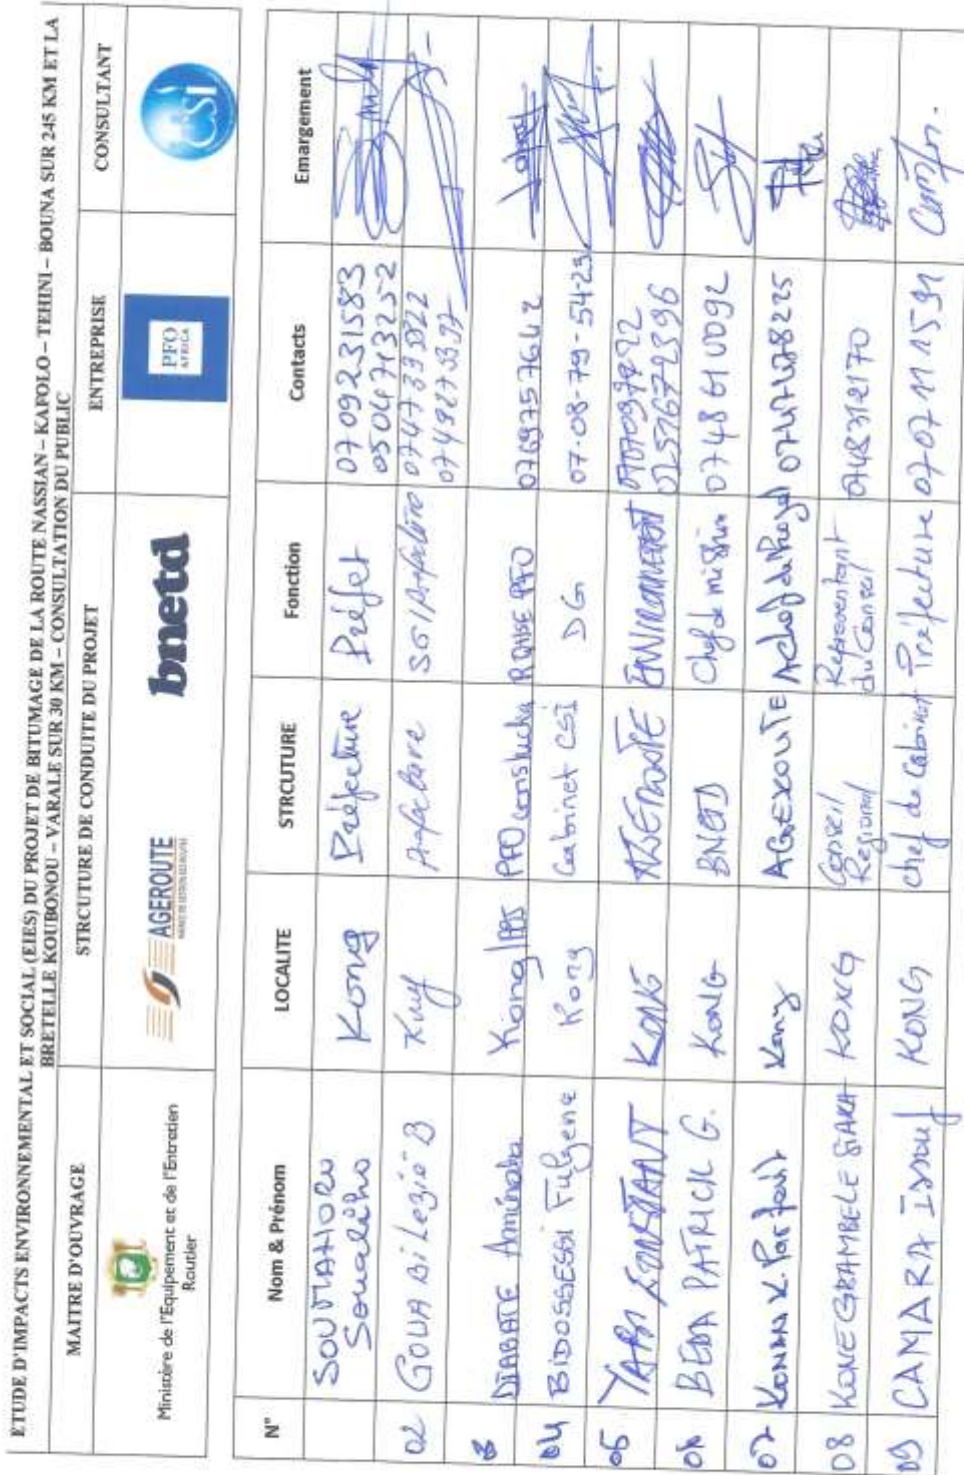 ETUDE D'IMPACTS ENVIRONNEMENTAL ET SOCIAL (EIES) DU PROJET DE BITUMAGE DE LA ROUTE NASSIAN – KAFOLO – TEHINI – BOUNA SUR 245 KM ET LA
BRETELLE KOUBONOU – VARALE SUR 30 KM – CONSULTATION DU PUBLIC
MAITRE D'OUVRAGE STRCUTURE DE CONDUITE DU PROJET ENTREPRISE CONSULTANT
Ministère de l'Equipement et de l'Entretien
Routier
AGEROUTE
bnetd
PFO
AFRICA
CSI
N° Nom & Prénom LOCALITE STRCUTURE Fonction Contacts Emargement
SOUMAHORO Kong Préfecture Préfet 0709231583
Soualiho 0504713252
02 GOUA Bi Lezié B Préfecture 0747339022
0749273397
DIABATE Aminata Kong PFO 0769757642
04 BIDOSSESSI Fulgene Kong Cabinet CSI DG 07-08-79-54-23
05 YAPI CONSTANT KONG ENVIRONNEMENT
BEDA PATRICK G. KONG BNETD Chef de mission 0748610092
07 KONAN K. Parfait Kong AGEROUTE 0747478225
08 KONE GBAMBELE SIAKA KONG Conseil Régional Représentant du Conseil 0748312170
09 CAMARA Issouf KONG chef de Cabinet Préfecture 0707111591